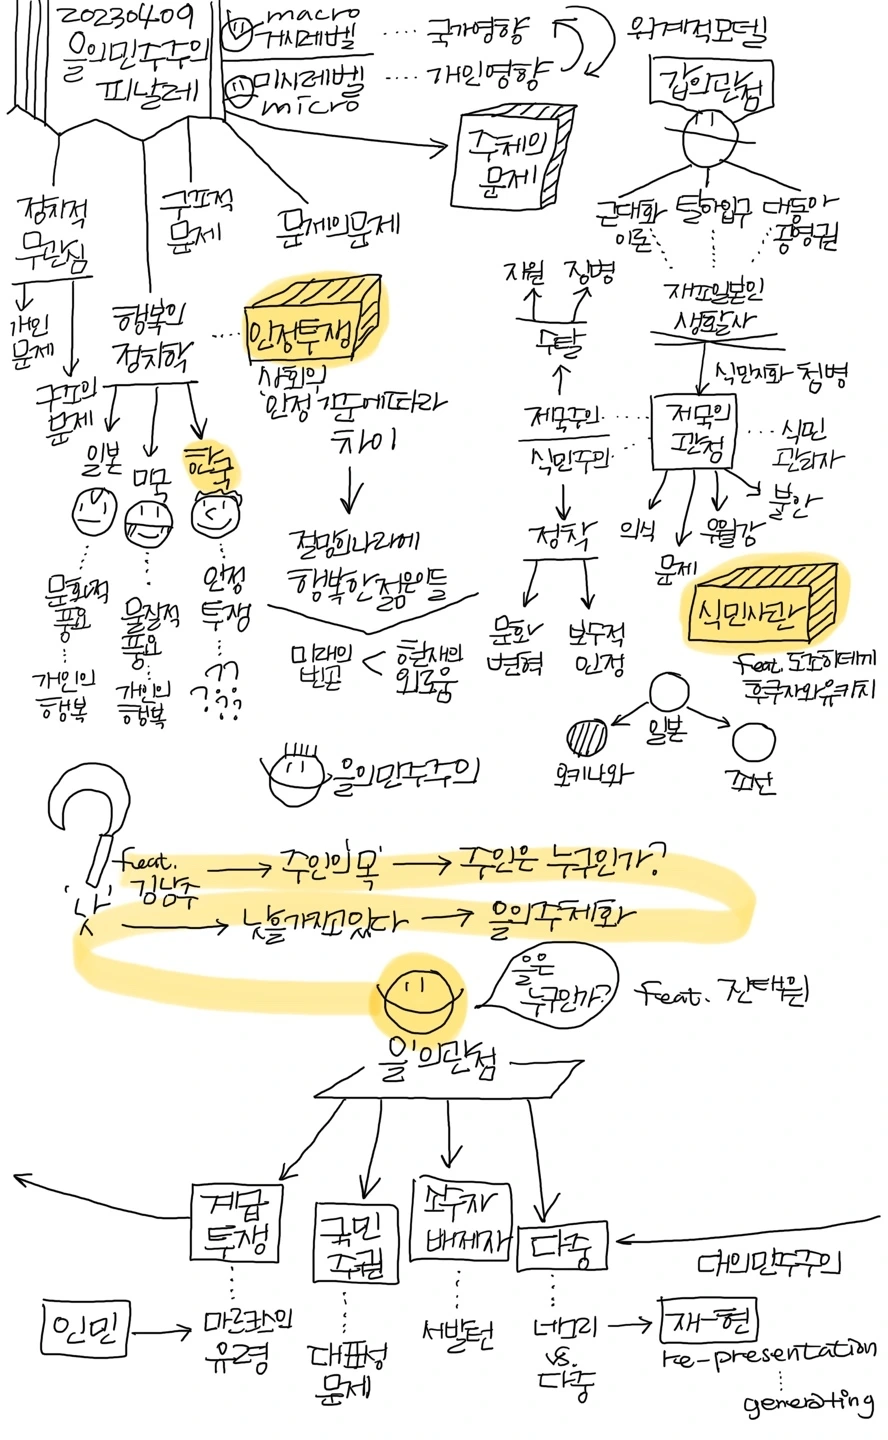 20230409
을의민주주의
피날레
macro
거시레벨 국가영향
미시레벨 개인영향
micro
위계적모델
갑의관점
주체의
문제
정치적
무관심
구조적
문제
문제의문제
근대화
이론
탈아입구
대동아
공영권
개인
문제
구조의
문제
행복의
정치학
인정투쟁
사회의
'인정'기준에따라
차이
일본
미국
한국
문화적
풍요
개인의
행복
물질적
풍요
개인의
행복
인정
투쟁
??
????
절망의나라에
행복한젊은이들
미래의
빈곤
<
현재의
외로움
자원 징병
수탈
제국주의
식민주의
정착
문화
변혁
보두적
인정
재조일본인
생활사
식민지화 첨병
저묵의
관점
식민
관리자
의식
문제
우월감
불안
식민사관
feat. 도조히데끼
후쿠자와유키치
일본
오키나와
조선
을의민주주의
'낫'
feat.
김남주
주인의'목' 주인은 누구인가?
낫을가지고있다 을의주체화
을은
누구인가?
feat. 진태원
을'의관점
계급
투쟁
국민
주권
소수자
배제자
다중
대의민주주의
인민
마르크스의
유령
대표성
문제
서발턴
네그리
vs.
다중
재-현
re-presentation
generating